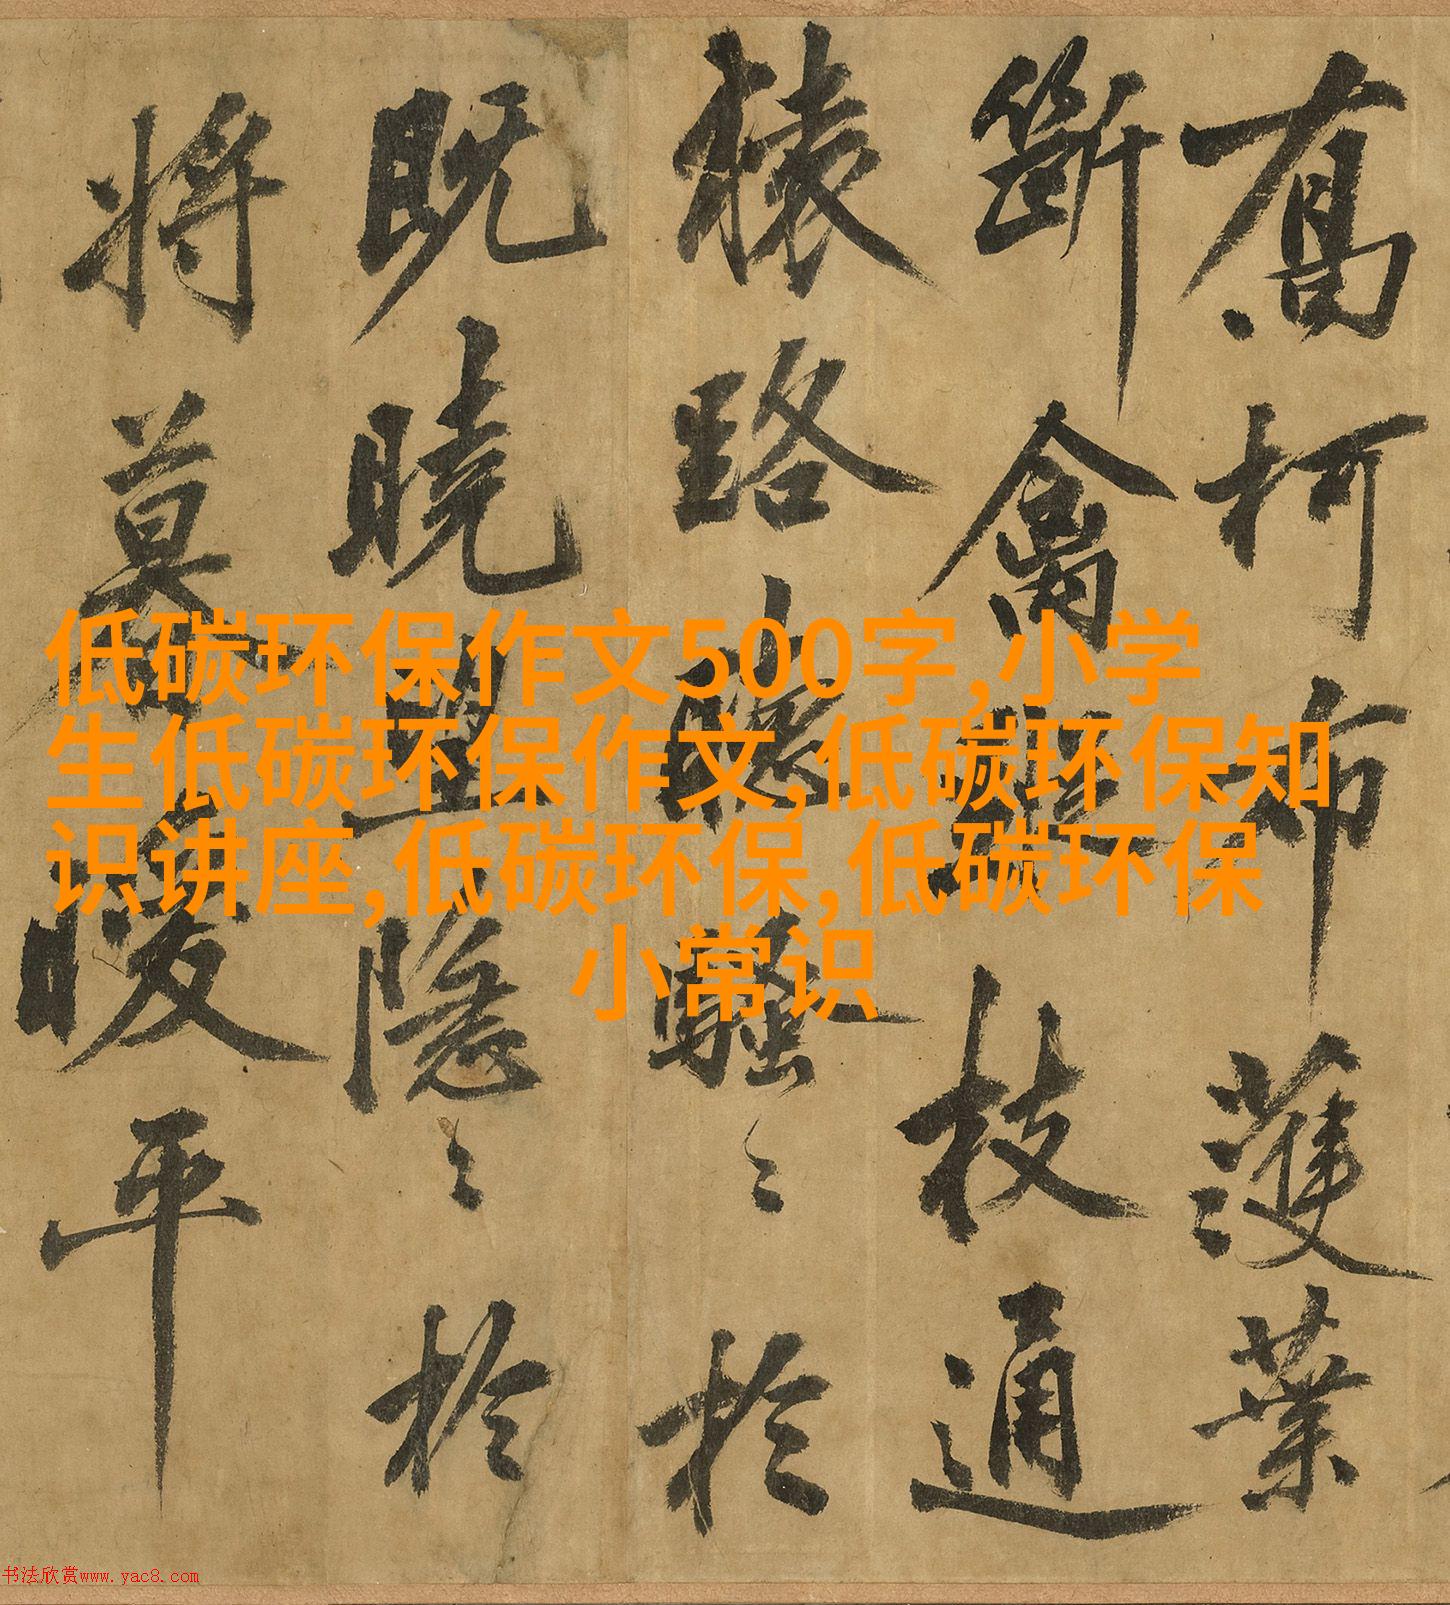 低碳环保作文500字,小学
生低碳环保作文,低碳环保知
识讲座,低碳环保,低碳环保
小常识
喬柯布濩葉
斷禽枝通
猿路聽騷〻於
既曉望隱〻於
將莫暖平
书法欣赏www.yac8.com